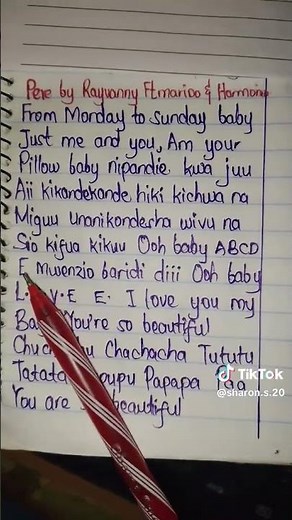 Pere by Rayvanny Ft marioo & Harmonize
From Monday to Sunday baby
Just me and you, Am your
Pillow baby nipandie kwa juu
Aii kikandekonde hiki kichwa na
Miguu unanikondesha wivu na
Sio kifua kikuu Ooh baby ABCD
E mwenzio baridi diii Ooh baby
L. V. E E. I love you my
You're so beautiful
Chachacha Tututu
Tatata Papapa
You are beautiful
TikTok
@sharon.s.20